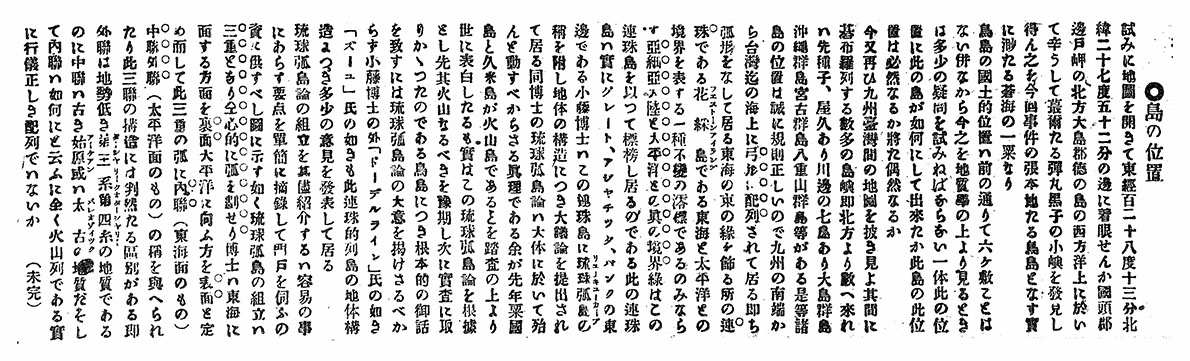 ◎島の位置
試みに地圖を開きて東經百二十八度十三分北
緯二十七度五十二分の邊に着眼せんか國頭郡
邊戸岬の北方大島郡徳の島の西方洋上に於い
て辛うして蕞爾たる彈丸黑子の小嶼を發見し
得ん之を今回事件の張本地たる鳥島となす實
に渺たる蒼海の一粟なり
鳥島の國土的位置い前の通りて六ケ敷ことは
ない併なから今之を地質學の上より見るとき
は多少の疑問を試みねばならない一体此の位
置に此の島が如何にして出來たか此島の此位
置は必然なるか將た偶然なるか
今又再ひ九州臺灣間の地圖を披き見よ其間に
碁布羅列する數多の島嶼即北方より數へ來れ
い先種子、屋久あり川邊の七島あり大島群島
沖繩群島宮古群島八重山群島等がある是等諸
島の位置は誠に規則正しいので九州の南端か
ら台灣迄の海上に弓形に配列されて居る即ち
弧形をなして居る東海の東の緣を飾る所の連
珠である花綵島である東海と太平洋との
境界を表する一種不變の澪標であるのみなら
す亞細亞大陸と太平洋との眞の境界綠はこの
連珠島を以つて標榜し居るのである此の連珠
島い實にグレート、アジヤチック、バンクの東
邊である小藤博士いこの連珠島に琉球弧島の
稱を附し地体の構造につき大議論を提出され
て居る同博士の琉球弧島論い大体に於いて殆
んと動すべからさる眞理である余が先年粟國
島と久米島が火山島であることを踏査の上より
世に表白したるも實はこの琉球弧島論を根據
とし先其火山なるべきを豫期し次に實査に取
りかゝつたのである鳥島につき根本的の御話
を致すには琉球弧島論の大意を掲けさるべか
らす小藤博士の外「ドーデルライン」氏の如き
「ズユース」氏の如きも此連珠的列島の地体構
造につき多少の意見を發表して居る
琉球弧島論の組立を其儘紹介するい容易の事
にあらす要点を單簡に摘錄して門戸を伺ふの
資に供すべし圖に示す如く琉球弧島の組立い
三重となり仝心的に弧を劃せり博士い東海に
面する方面を裏面大平洋に向ふ方を表面と定
め而して此三重の弧に内聯(東海面のもの)
中聯外聯(太平洋面のもの)の稱を與へられ
たり此三聯の構造には判然たる區別がある即
外聯は地勢低き第三系第四系の地質である
のに中聯い古き始原或い太古の地質だそし
て内聯い如何にと云ふに全く火山列である實
に行儀正しき配列でいないか　(未完)